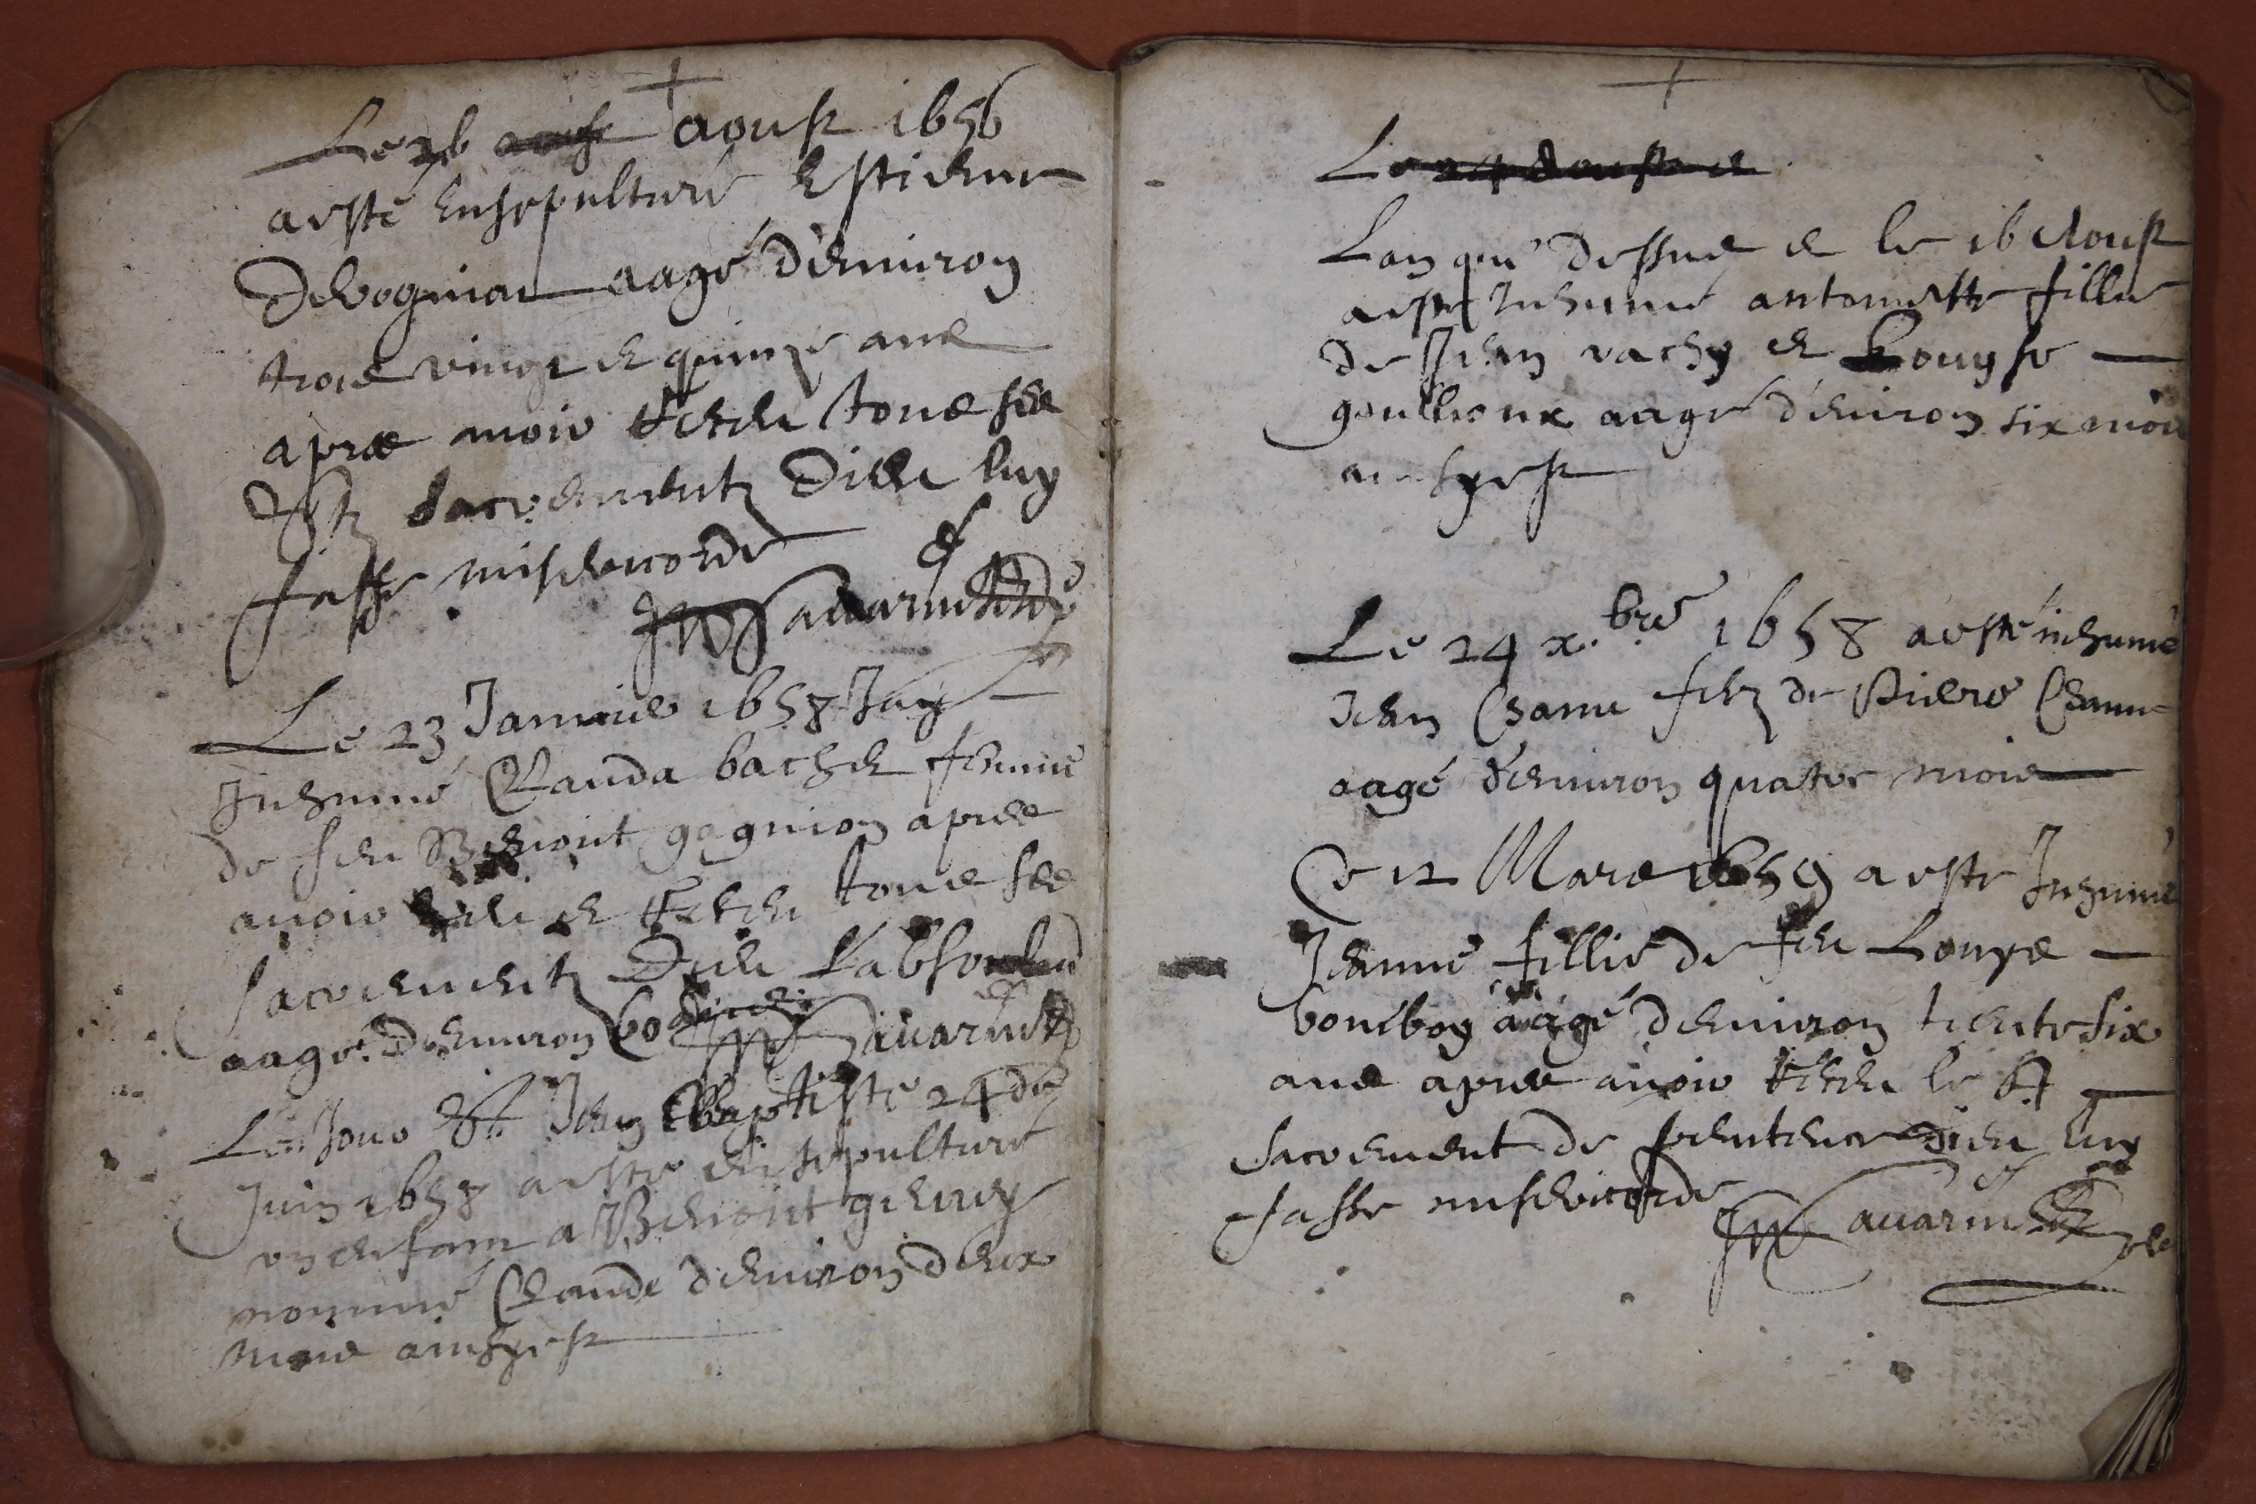 Le 26 aoust aoust 1656
a esté ensepulturé Estienne
Devognion aagé d'environ
trois vingt et quinze ans
apres avoir receu tous ses
dstz sacrementz Dieu luy
fasse misericorde
Le 23 Janvier 1658 Jay
Inhumé Clauda bachet femme
de feu Benoit gagnion apres
avoir et receu tous ses
sacrementz Dieu l'absoulve
aagé d'environ 60
Le Jour de St Jean Baptiste 24 de
Juin 1658 a esté ensepulturé
un enfant a Benoit
nommé Claude d'environ deux
mois ainsy est
Le 24 Aoust et
Lan que dessus et le 16 Aoust
a esté Inhumé antoinette fillie
de Jean vachy et Louyse
goullioux aagé d'environ six mois
ainsy est
Le 24 x.bre 1658 a esté inhumé
Jean Chanu filz de Pierre Chanu
aagé d'environ quatre mois
Ce 12 Mars 1659 a esté Inhumé
Jeanne fillie de feu Louys
boniboy aagé d'environ trente six
ans apres avoir receu le St
sacrement de penitence Dieu luy
fasse misericorde